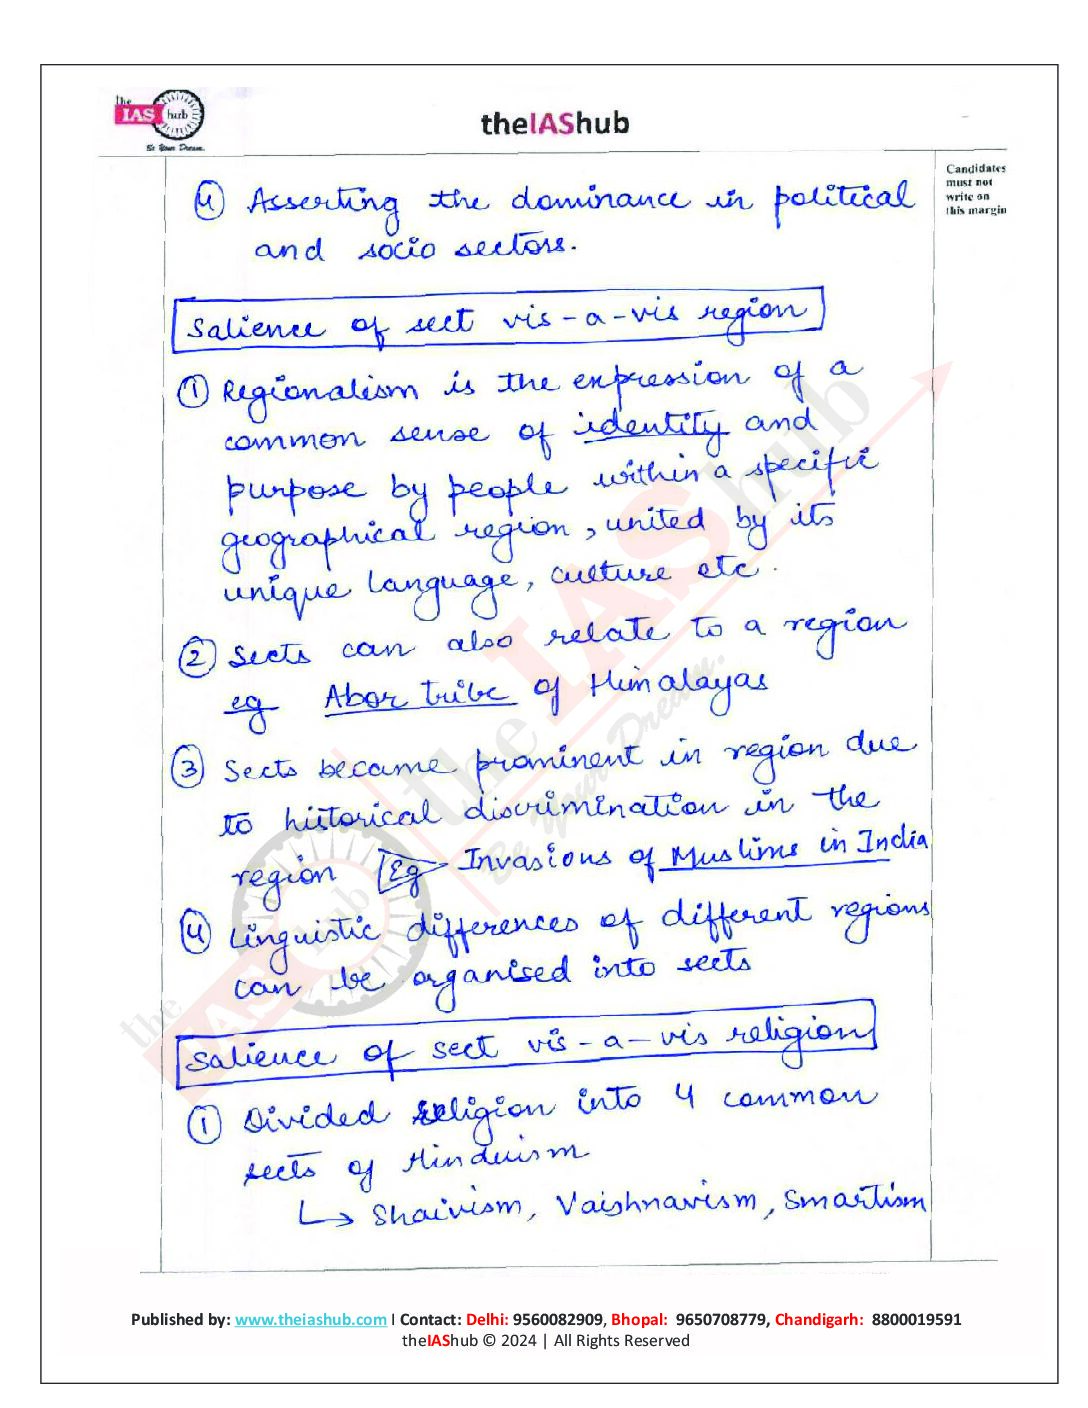 the
IAS hub
Be Your Dream.
theIAShub
Candidates
must not
write on
this margin
④ Asserting the dominance in political
and socio sectors.
Salience of sect vis-a-vis region
① Regionalism is the expression of a
common sense of identity and
purpose by people within a specific
geographical region, united by its
unique language, culture etc.
② Sects can also relate to a region
eg Abor tribe of Himalayas
③ Sects became prominent in region due
to historical discrimination in the
region Eg Invasions of Muslims in India
④ Linguistic differences of different regions
can be organised into sects
Salience of sect vis-a-vis religion
① Divided religion into 4 common
sects of Hinduism
↳ Shaivism, Vaishnavism, Smartism
the IAS hub
Be Your Dream.
Published by: www.theiashub.com I Contact: Delhi: 9560082909, Bhopal: 9650708779, Chandigarh: 8800019591
theIAShub © 2024 | All Rights Reserved